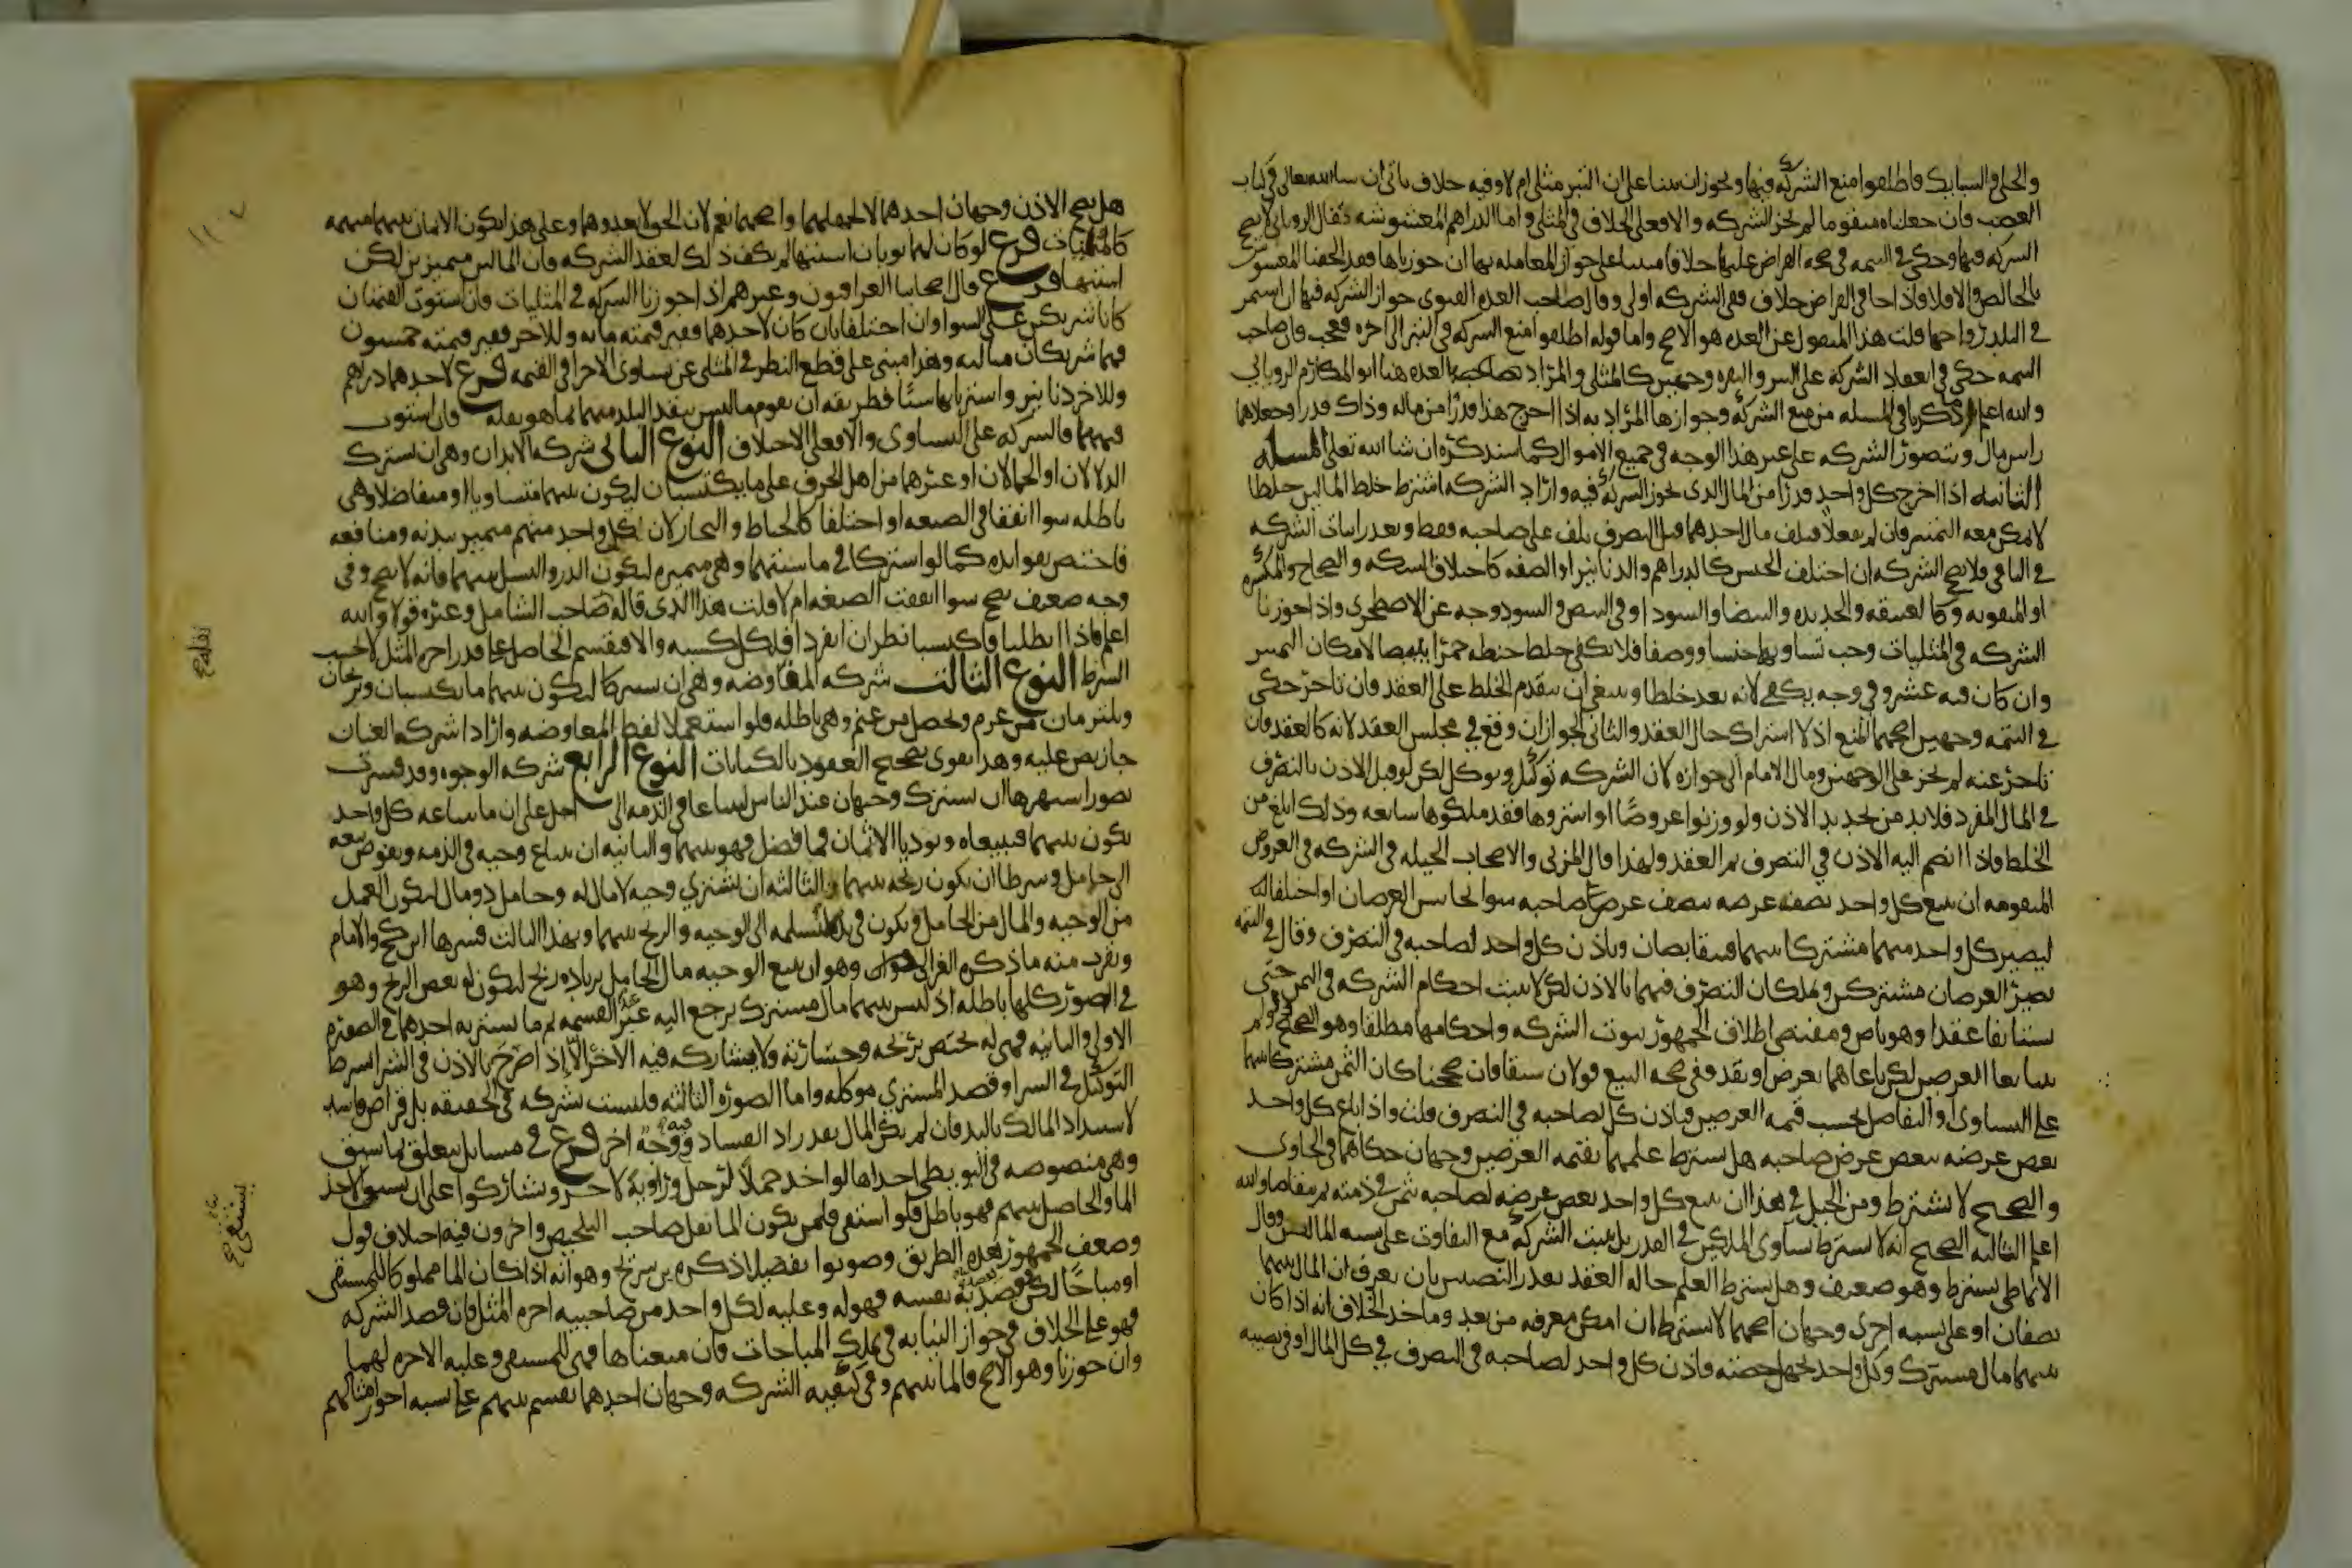 والحلي والسبائك فاطلقوا منع الشركة فيها ويجوز ان يبنا على ان التبر مثلي ام لا وفيه خلاف ياتي ان شا الله تعالى في كتاب
الغصب فان جعلناه متقوما لم تجز الشركه والا فعلى الخلاف في المثلي واما الدراهم المغشوشه فقال الروياني لا تصح
الشركه فيها وحكى في التتمه في صحه القراض عليها خلافا مبنيا على جواز المعامله بها ان جوزناها فقد الحقنا المغشوش
بالخالص والا فلا فاذا جا في القراض خلاف ففي الشركه اولى وقال صاحب العده الفتوى جواز الشركه فيها ان استمر
في البلد رواجها قلت هذا المنقول عن العده هو الاصح واما قوله اطلقوا منع الشركه في التبر الى اخره فعجب فان صاحب
التتمه حكى في انعقاد الشركة على التبر والنقره وجهين كالمثلي والمراد بصاحب العده هنا ابو المكارم الروياني
والله اعلم وما ذكرنا في المسله من منع الشركة وجوازها المراد به اذا اخرج هذا قدرا من ماله وذاك قدرا وجعلاهما
راس مال وتتصور الشركه على غير هذا الوجه في جميع الاموال كما سنذكره ان شا الله تعالى المسله
الثانيه اذا اخرج كل واحد قدرا من المال الذي تجوز الشركة فيه واراد الشركه اشترط خلط المالين خلطا
لا يمكن معه التمييز فان لم يفعلا فتلف مال احدهما قبل التصرف تلف على صاحبه فقط وتعذر اثبات الشركه
في الباقي ولا تصح الشركه ان اختلف الجنس كالدراهم والدنانير او الصفه كاختلاف السكه والصحاح والمكسره
او المثقوبه وكالعتيقه والجديده والبيضا والسودا وفي البيض والسود وجه عن الاصطخري واذا جوزنا
الشركه في المثليات وجب تساويهما جنسا ووصفا فلا يكفي خلط حنطه حمرا ببيضا لامكان التمييز
وان كان فيه عسر وفي وجه يكفي لانه يعد خلطا وينبغي ان يتقدم الخلط على العقد فان تاخر حكى
في التتمه وجهين اصحهما المنع اذ لا اشتراك حال العقد والثاني الجواز ان وقع في مجلس العقد لانه كالعقد فان
تاخر عنه لم يجز على الوجهين ومال الامام الى جوازه لان الشركه توكيل وتوكل لكن لو قيل الاذن بالتصرف
في المال المفرد فلا بد من تجديد الاذن ولو ورثوا عروضا او اشتروها فقد ملكوها شايعه وذلك ابلغ من
الخلط فاذا انضم اليه الاذن في التصرف تم العقد ولهذا قال المزني والاصحاب الحيله في الشركه في العروض
المتقومه ان يبيع كل واحد نصف عرضه بنصف عرض صاحبه سوا تجانس العرضان او اختلفا
ليصير كل واحد منهما مشتركا بينهما فيتقابضان وياذن كل واحد لصاحبه في التصرف وقال في التتمه
يصير العرضان مشتركين ويملكان التصرف فيهما بالاذن لكن لا تثبت احكام الشركه في الثمن حتى
يستانفا عقدا وهو ناض ومقتضى اطلاق الجمهور ثبوت الشركه واحكامها مطلقا وهو الصحيح ولو لم
يتبايعا العرضين لكن باعاهما بعرض او نقد ففي صحه البيع قولان سبقا فان صححنا كان الثمن مشتركا بينهما
على التساوي او التفاضل بحسب قيمه العرضين فياذن كل لصاحبه في التصرف قلت واذا باع كل واحد
بعض عرضه ببعض عرض صاحبه هل يشترط علمهما بقيمه العرضين وجهان حكاهما في الحاوي
والصحيح لا يشترط ومن الحيل في هذا ان يبيع كل واحد بعض عرضه لصاحبه بثمن في ذمته ثم يتقاصا والله
اعلم الثالثه الصحيح انه لا يشترط تساوي المالين في القدر بل تثبت الشركة مع التفاوت على نسبه المالين وقال
الانماطي يشترط وهو ضعيف وهل يشترط العلم حاله العقد بقدر النصيبين بان يعرف ان المال بينهما
نصفان او على نسبه اخرى وجهان اصحهما لا يشترط ان امكن معرفه من بعد وماخذ الخلاف انه اذا كان
بينهما مال مشترك وكل واحد يجهل حصته فاذن كل واحد لصاحبه في التصرف في كل المال او في نصيبه
هل يصح الاذن وجهان احدهما لا لجهلهما واصحهما نعم لان الحق لا يعدوهما وعلى هذا تكون الاثمان بينهما مبهمه
كالمثمنات فرع لو كان لهما ثوبان اشتبها لم يكف ذلك لعقد الشركه فان المالين متميزين لكن
اشتبها فرع قال اصحابنا العراقيون وغيرهم اذا جوزنا الشركة في المثليات فان استوت القيمتان
كانا شريكين على السوا وان اختلفتا بان كان لاحدهما قفيز قيمته مائه وللاخر قفيز قيمته خمسون
فهما شريكان مثالثه وهذا مبني على قطع النظر في المثلي عن تساوي الاجزا في القيمه فرع لاحدهما دراهم
وللاخر دنانير واشتريا بهما شيئا فطريقه ان يقوم ما ليس بنقد البلد منهما بما هو نقده فان استوت
قيمتهما فالشركه على التساوي والا فعلى الاختلاف النوع الثاني شركه الابدان وهي ان يشترك
الدلالان او الحمالان او غيرهما من اهل الحرف على ما يكتسبان ليكون بينهما متساويا او متفاضلا وهي
باطله سوا اتفقا في الصنعه او اختلفا كالخياط والنجار لان كل واحد منهم متميز ببدنه ومنافعه
فاختص بفوايده كما لو اشتركا في ماشيتهما وهي متميزه ليكون الدر والنسل بينهما فانه لا يصح وفي
وجه ضعيف تصح سوا اتفقت الصنعه ام لا قلت هذا الذي قاله صاحب الشامل وغيره قولا والله
اعلم فاذا ابطلنا واكتسبا نظر ان انفردا فلكل كسبه والا فيقسم الحاصل على قدر اجره المثل لا بحسب
الشرط النوع الثالث شركه المفاوضه وهي ان يشتركا ليكون بينهما ما يكسبان ويربحان
ويلتزمان من غرم ويحصل من غنم وهي باطله فلو استعملا لفظ المفاوضه وارادا شركه العنان
جاز نص عليه وهذا يقوي تصحيح العقود بالكنايات النوع الرابع شركه الوجوه وقد فسرت
بصور اشهرها ان يشترك وجيهان عند الناس ليبتاعا في الذمه الى اجل على ان ما يبتاعه كل واحد
يكون بينهما فيبيعاه ويوديا الاثمان فما فضل فهو بينهما والثانيه ان يبتاع وجيه في الذمه ويفوض بيعه
الى خامل وشرطا ان يكون ربحه بينهما والثالثه ان يشتري وجيه لا مال له وخامل ذو مال ليكون العمل
من الوجيه والمال من الخامل ويكون في يده لا يسلمه الى الوجيه والربح بينهما وبهذا الثالث فسرها ابن كج والامام
ويقرب منه ما ذكره الغزالي وهو ان يبيع الوجيه مال الخامل بزياده ربح ليكون له بعض الربح وهو
في الصور كلها باطله اذ ليس بينهما مال مشترك يرجع اليه عند القسمه ثم ما يشتريه احدهما في الصوره
الاولى والثانيه فهو له يختص بربحه وخسارته ولا يشاركه فيه الاخر الا اذا صرح بالاذن في الشرا بشرط
التوكيل في الشرا وقصد المشتري موكله واما الصوره الثالثه فليست بشركه في الحقيقه بل قراض فاسد
لاستبداد المالك باليد فان لم يكن المال نقدا زاد الفساد وجه اخر فرع في مسايل تتعلق بما سبق
وهي منصوصه في البويطي احداها لو اخذ جملا لرجل وراويه لاخر وتشاركوا على ان يستقي الاخذ
الما والحاصل بينهم فهو باطل فلو استقى فلمن يكون الما نقل صاحب التلخيص واخرون فيه اختلاف قول
وضعف الجمهور هذه الطريق وصوبوا تفصيلا ذكره ابن سريج وهو انه اذا كان الما مملوكا للمستقي
او مباحا لكن قصد به نفسه فهو له وعليه لكل واحد من صاحبيه اجره المثل وان قصد الشركه
فهو على الخلاف في جواز النيابه في تملك المباحات فان منعناها فهي للمستقي وعليه الاجره لهما
وان جوزنا وهو الاصح فالما بينهم وفي كيفيه الشركه وجهان احدهما يقسم بينهم على نسبه اجور امثالهم